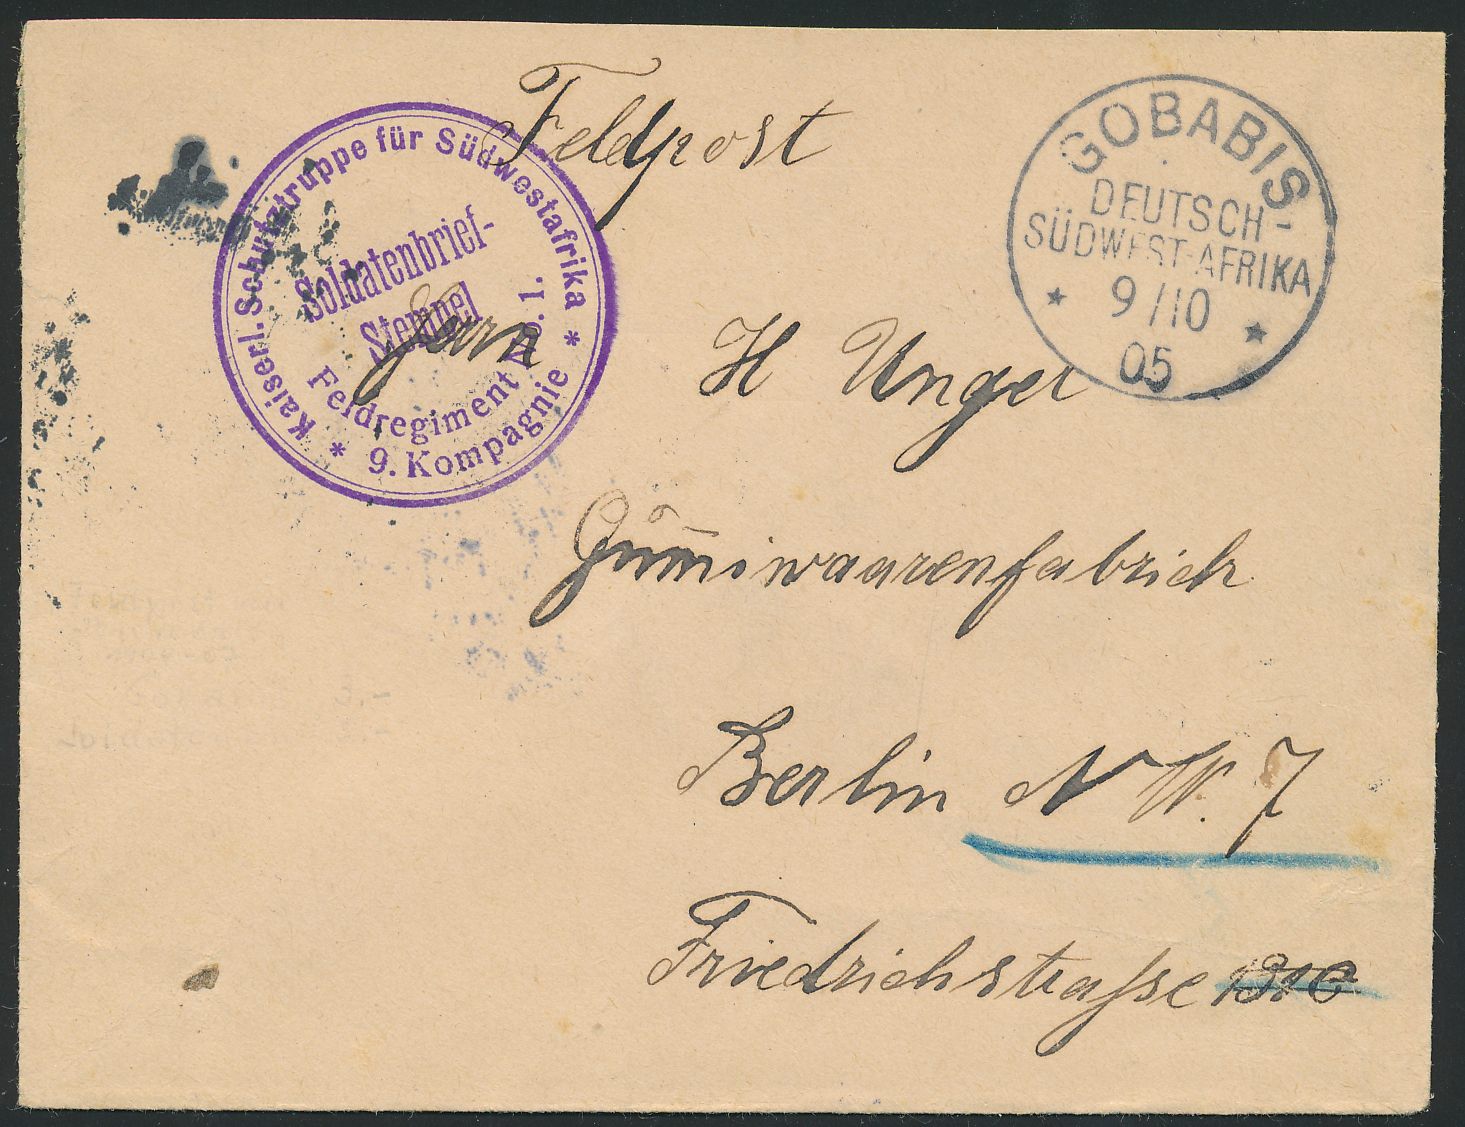 Feldpost
Kaiserl. Schutztruppe für Südwestafrika
Soldatenbrief-
Stempel
Feldregiment No. 1.
9. Kompagnie
GOBABIS
DEUTSCH-
SÜDWEST-AFRIKA
9/10
05
H Unger
Gummiwaarenfabrick
Berlin N W. 7
Friedrichstrasse